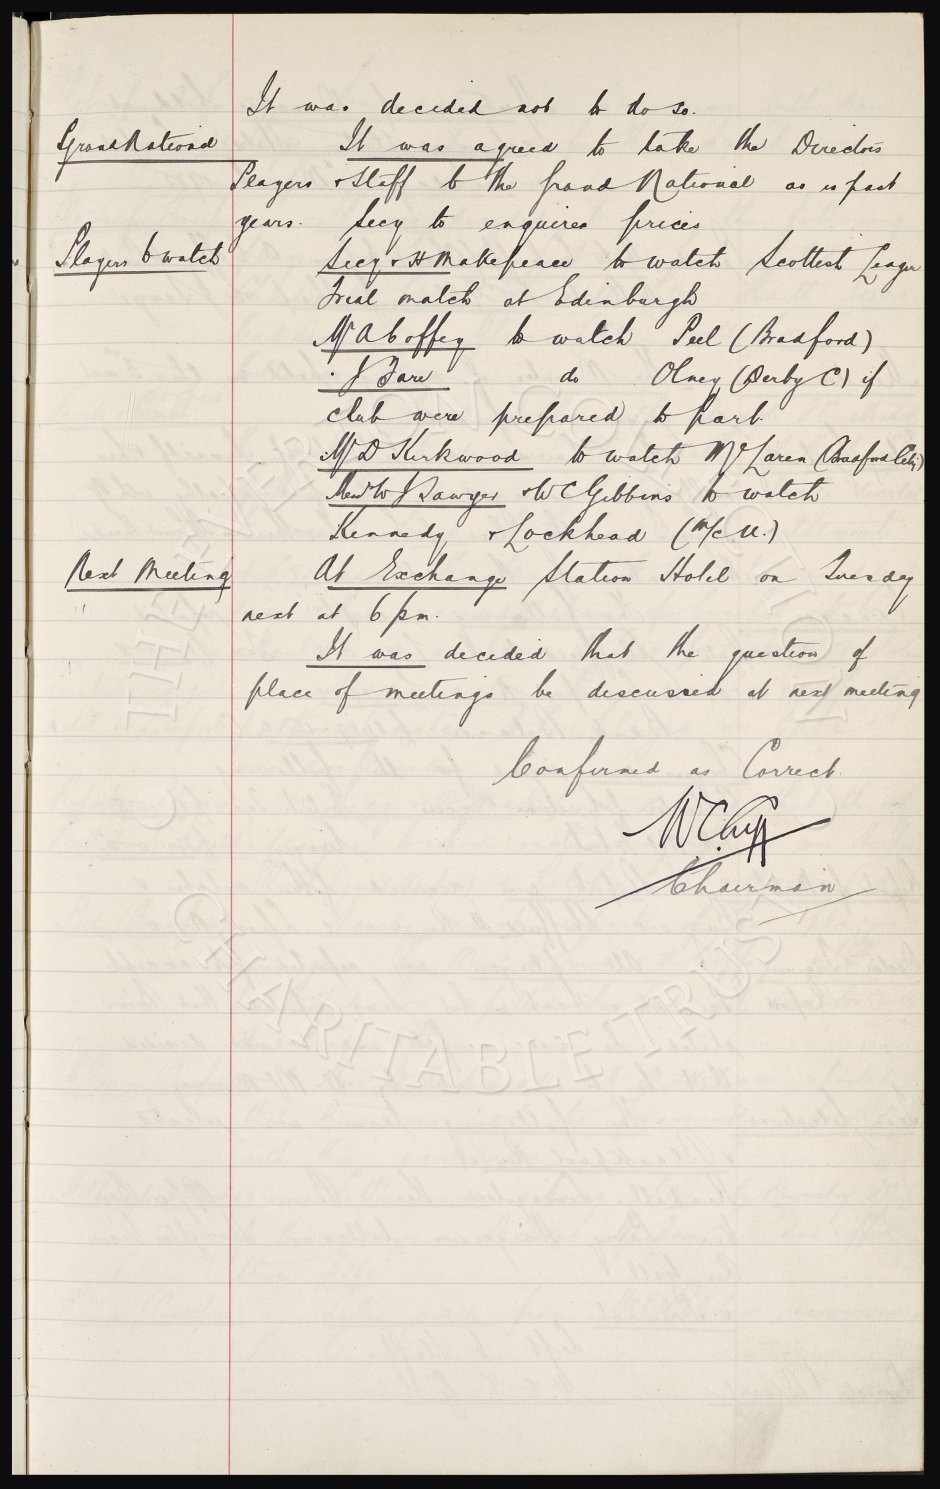 It was decided not to do so.
Grand National It was agreed to take the Directors
Players & Staff to the Grand National as in past
years. Secy to enquire prices
Players to watch Secy & H Makepeace to watch Scottish League
Trial match at Edinburgh
Mr A Coffey to watch Peel (Bradford)
" J Fare do Olney (Derby C) if
club were prepared to part.
Mr D Kirkwood to watch McLaren (Bradford City)
Mess W J Sawyer & W C Gibbins to watch
Kennedy & Lockhead (M/c U.)
Next Meeting At Exchange Station Hotel on Tuesday
next at 6 pm.
It was decided that the question of
place of meetings be discussed at next meeting
Confirmed as Correct.
W C Cuff
Chairman
THE EVERTON COLLECTION
CHARITABLE TRUST